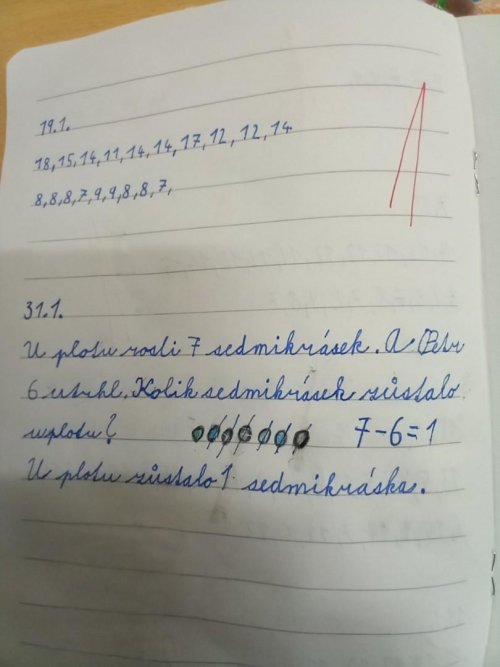 19.1.
1
18,15,14,11,14,14,17,12,12,14
8,8,8,7,9,9,8,8,7,
31.1.
U plotu rostli 7 sedmikrásek. A Petr
6 utrhl. Kolik sedmikrásek zůstalo
u plotu? 7-6=1
U plotu zůstalo 1 sedmikráska.